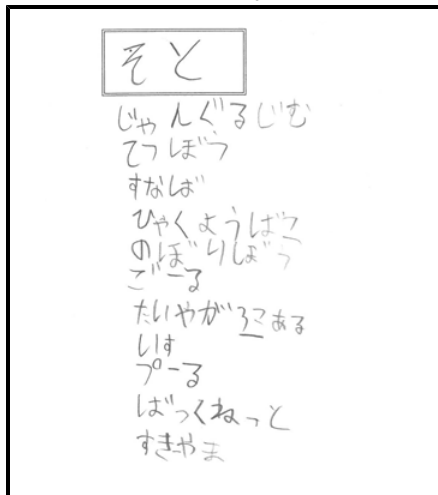 そと
じゃんぐるじむ
てつぼう
すなば
ひゃくようばこ
のぼりぼう
ごーる
たいやが32ある
いす
プーる
ばっくねっと
すきやま